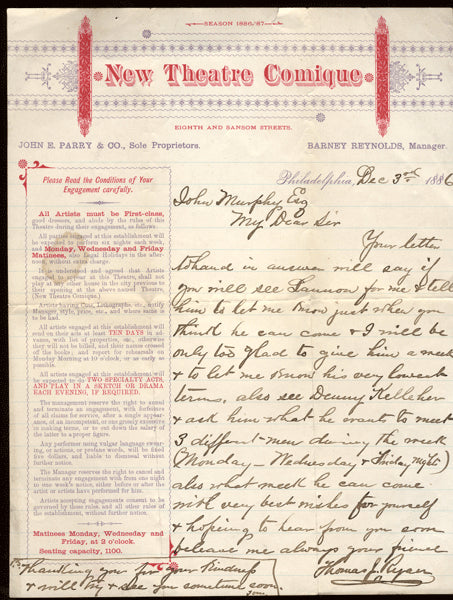 SEASON 1886-'87
New Theatre Comique
EIGHTH AND SANSOM STREETS.
JOHN E. PARRY & CO., Sole Proprietors.
BARNEY REYNOLDS, Manager.
Please Read the Conditions of Your
Engagement carefully.
All Artists must be First-class,
good dressers, and abide by the rules of this
Theatre during their engagement, as follows:
All parties engaged at this establishment will
be expected to perform six nights each week,
and Monday, Wednesday and Friday
Matinees, also Legal Holidays in the after-
noon, without extra charge.
It is understood and agreed that Artists
engaged to appear at this Theatre, shall not
play at any other house in the city previous to
their opening at the above named Theatre,
(New Theatre Comique).
Parties having Cuts, Lithographs, etc., notify
Manager, style, price, etc., and where same is
to be had.
All Artists engaged at this establishment will
send on their acts at least TEN DAYS in ad-
vance, with list of properties, etc., otherwise
they will not be billed, and their names crossed
off the books; and report for rehearsals on
Monday Morning at 10 o'clock, or as early as
possible.
All artists engaged at this establishment will be
expected to do TWO SPECIALTY ACTS,
AND PLAY IN A SKETCH OR DRAMA
EACH EVENING, IF REQUIRED.
The management reserve the right to annul
and terminate an engagement, with forfeiture
of all claims for service, after a single appear-
ance, if an incompetent, or one grossly excessive
in making terms, or to cut down the salary of
the latter to a proper figure.
Any performer using vulgar language swear-
ing, or actions, or profane words, will be fined
five dollars, and liable to dismissal without
further notice.
The Manager reserve the right to cancel and
terminate any engagement with from one night
to one week's notice, either before or after the
artist or artists have performed for him.
Artists accepting engagements consent to be
governed by these rules, and all other rules of
the establishment, without further notice.
Matinees Monday, Wednesday and
Friday, at 2 o'clock.
Seating capacity, 1100.
Philadelphia, Dec 3rd 1886
John Murphy Esq
My Dear Sir
Your letter
to hand in answer will say if
you will see Lannon for me & tell
him to let me know just when you
think he can come & I will be
only too glad to give him a week
& to let me know his very lowest
terms, also see Denny Kelleher
& ask him what he wants to meet
3 different men during the week
(Monday - Wednesday & Friday nights)
also what week he can come
with very best wishes for yourself
& hoping to hear from you soon
believe me always your friend
Thomas
P.S. Thanking you for your kindness
& will try & see you sometime soon.